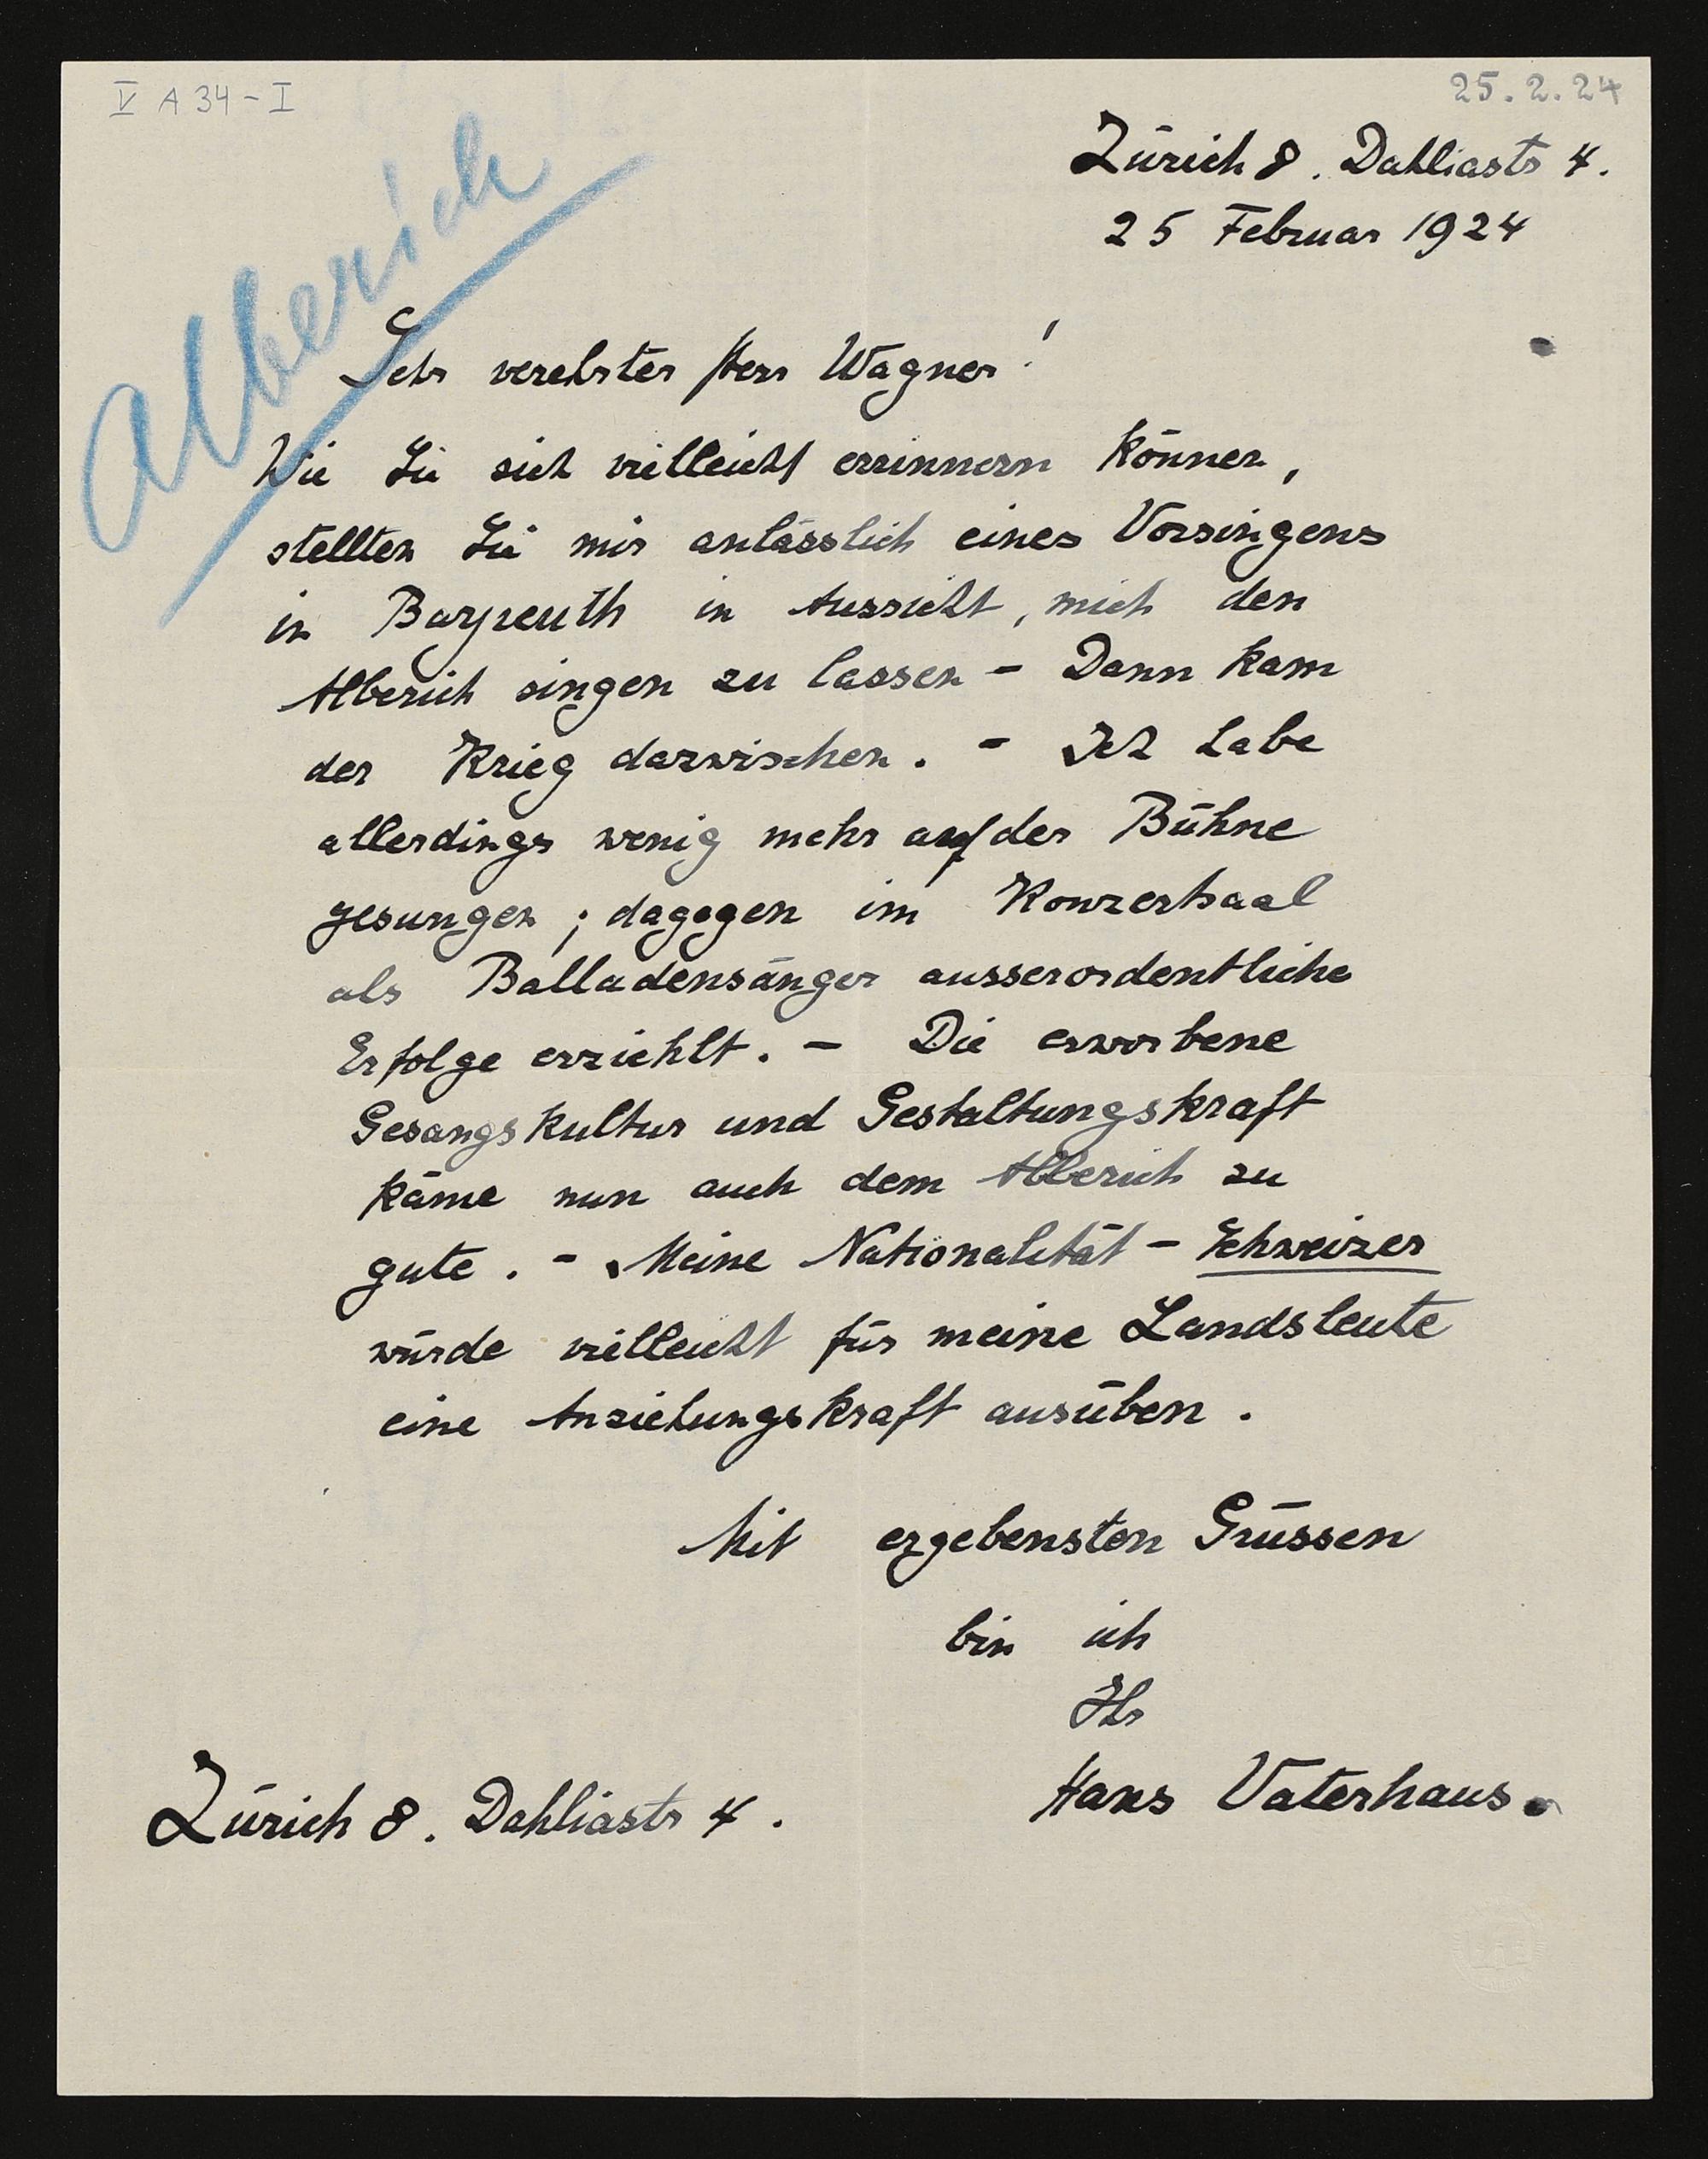 V A 34 - I
25. 2. 24
Alberich
Zürich 8. Dahliastr 4.
25 Februar 1924
Sehr verehrter Herr Wagner!
Wie Sie sich vielleicht errinnern können,
stellten Sie mir anlässlich eines Vorsingens
in Bayreuth in Aussicht, mich den
Alberich singen zu lassen – Dann kam
der Krieg dazwischen. – Ich habe
allerdings wenig mehr auf der Bühne
gesungen; dagegen im Konzertsaal
als Balladensänger ausserordentliche
Erfolge erziehlt. – Die erworbene
Gesangskultur und Gestaltungskraft
käme nun auch dem Alberich zu
gute. – Meine Nationalität – Schweizer
würde vielleicht für meine Landsleute
eine Anziehungskraft ausüben.
Mit ergebensten Grüssen
bin ich
Ihr
Hans Vaterhaus.
Zürich 8. Dahliastr 4.